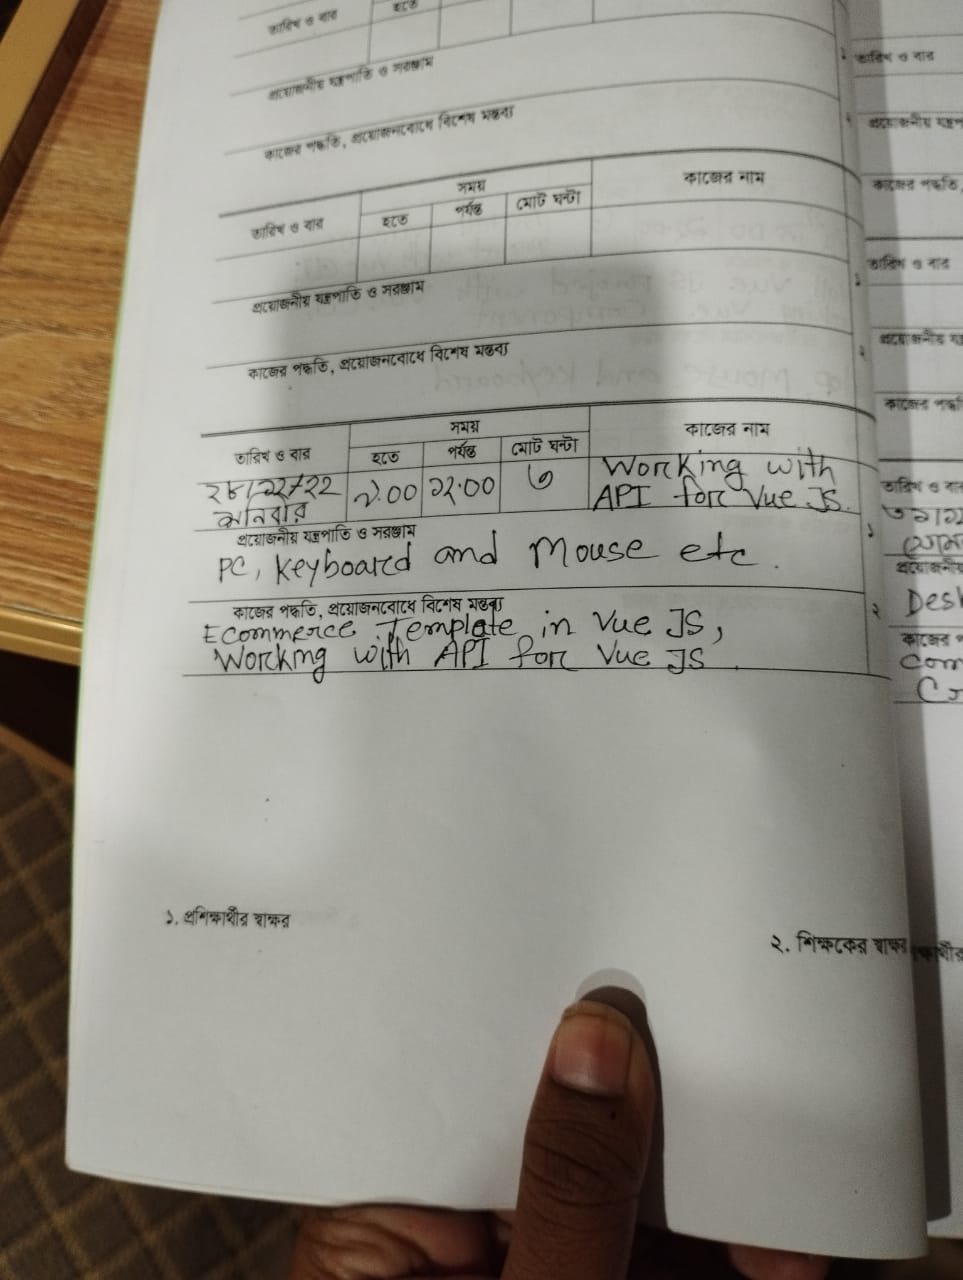 তারিখ ও বার
হতে
প্রয়োজনীয় যন্ত্রপাতি ও সরঞ্জাম
কাজের পদ্ধতি, প্রয়োজনবোধে বিশেষ মন্তব্য
তারিখ ও বার
সময়
হতে
পর্যন্ত
মোট ঘন্টা
কাজের নাম
প্রয়োজনীয় যন্ত্রপাতি ও সরঞ্জাম
কাজের পদ্ধতি, প্রয়োজনবোধে বিশেষ মন্তব্য
তারিখ ও বার
সময়
হতে
পর্যন্ত
মোট ঘন্টা
কাজের নাম
শনিবার
Working with
API for Vue JS.
প্রয়োজনীয় যন্ত্রপাতি ও সরঞ্জাম
PC, Keyboard and Mouse etc.
কাজের পদ্ধতি, প্রয়োজনবোধে বিশেষ মন্তব্য
Ecommerce Template in Vue JS,
Working with API for Vue JS
১. প্রশিক্ষার্থীর স্বাক্ষর
২. শিক্ষকের স্বাক্ষর
তারিখ ও বার
কাজের পদ্ধতি,
তারিখ ও বার